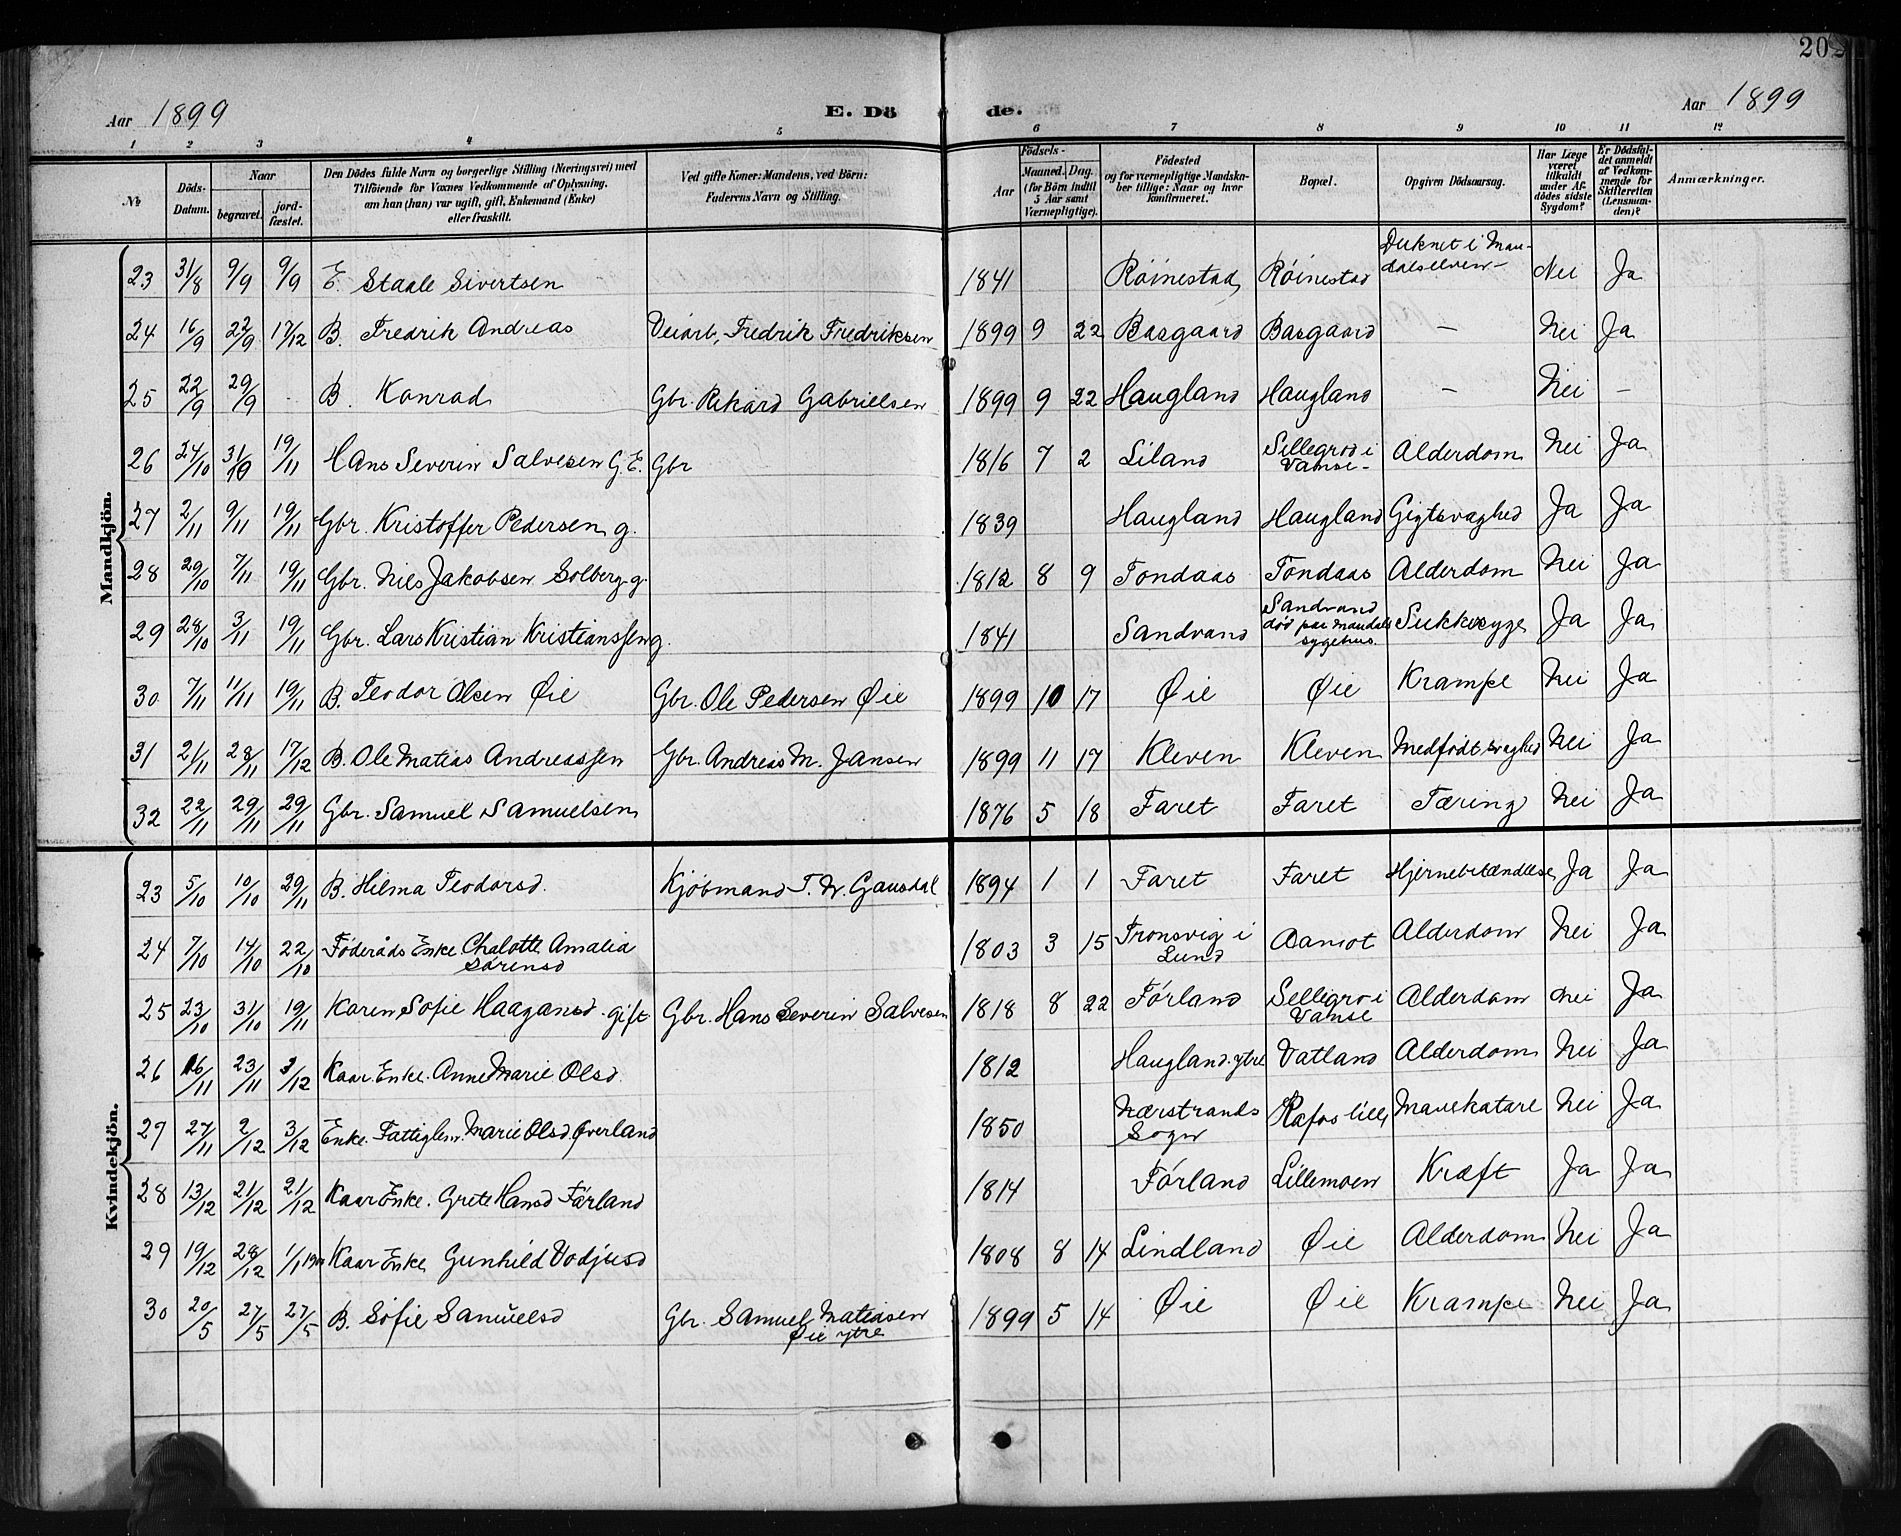 202
Aar 1899
E. Dö
de.
Aar 1899
1 2 3 4 5 6 7 8 9 10 11 12
No
Döds-
Datum.
Naar
begravet.
jord-
fæstet.
Den Dödes fulde Navn og borgerlige Stilling (Næringsvei) med
Tilföiende for Voxnes Vedkommende af Oplysning,
om han (hun) var ugift, gift, Enkemand (Enke)
eller fraskilt.
Ved gifte Koner: Mandens, ved Börn:
Faderens Navn og Stilling.
Födsels-
Aar
Maaned. Dag.
(for Börn indtil
5 Aar samt
Værnepligtige).
Födested
og for værnepligtige Mandska-
ber tillige: Naar og hvor
konfirmeret.
Bopæl.
Opgiven Dödsaarsag.
Har Læge
været
tilkaldt
under Af-
dödes sidste
Sygdom?
Er Dödsfal-
det anmeldt
af Vedkom-
mende for
Skifteretten
(Lensman-
den)?
Anmærkninger.
Mandkjön.
23 31/8 9/9 9/9 E. Staale Sivertsen 1841 Röinestad Röinestad Druknet i Man-
dalselven- Nei Ja
24 16/9 22/9 17/12 B. Fredrik Andreas Veiarb, Fredrik Fredriksen 1899 9 22 Basgaard Basgaard - Nei Ja
25 22/9 29/9 - B. Konrad Gbr. Rikard Gabrielsen 1899 9 22 Haugland Haugland - Nei -
26 24/10 31/10 19/11 Hans Severin Salvesen G.E. Gbr 1816 7 2 Liland Sellegrod i
Vanse- Alderdom Nei Ja
27 2/11 9/11 19/11 Gbr. Kristoffer Pedersen g. 1839 Haugland Haugland Gigtsvaghed Ja Ja
28 29/10 7/11 19/11 Gbr. Nils Jakobsen Solberg. g. 1812 8 9 Tondaas Tondaas Alderdom Nei Ja
29 28/10 3/11 19/11 Gbr. Lars Kristian Kristianssen g. 1841 Sandvand Sandvand
död paa Mandals
sygehus. Sukkersyge Ja Ja
30 7/11 11/11 19/11 B. Teodor Olsen Øie Gbr. Ole Pedersen Øie 1899 10 17 Øie Øie Krampe Nei Ja
31 21/11 28/11 17/12 B. Ole Matias Andreassen Gbr. Andreas M. Jansen 1899 11 17 Kleven Kleven Medfödt svaghed Nei Ja
32 22/11 29/11 29/11 Gbr. Samuel Samuelsen 1876 5 18 Faret Faret Tæring Nei Ja
Kvindekjön.
23 5/10 10/10 29/11 B. Hilma Teodorsd. Kjöbmand T. N. Gausdal 1894 1 1 Faret Faret Hjernebetændelse Ja Ja
24 7/10 14/10 22/10 Föderåds Enke Chalotte Amalia
Sörensd 1803 3 15 Tronsvig i
Lund Aamot Alderdom Nei Ja
25 23/10 31/10 19/11 Karen Sofie Haagansd. gift Gbr. Hans Severin Salvesen 1818 8 22 Förland Sellegro i
Vanse Alderdom Nei Ja
26 16/11 23/11 3/12 Kaar. Enke. Anne Marie Olsd. 1812 Haugland. ytre Vatland Alderdom Nei Ja
27 27/11 2/12 3/12 Enke. Fattiglem. Marie Olsd. Øverland 1850 Nærstrands
Sogn Rafos lille Mavekatare Nei Ja
28 13/12 21/12 21/12 Kaar Enke. Grete Hansd Förland 1814 Förland Lillemoen Kræft Ja Ja
29 19/12 28/12 1/1 Kaar Enke Gunhild 1808 8 14 Lindland Øie Alderdom Nei Ja
30 20/5 27/5 27/5 B. Sofie Samuelsd Gbr. Samuel Matiasen
Øie ytre 1899 5 14 Øie Øie Krampe Nei Ja